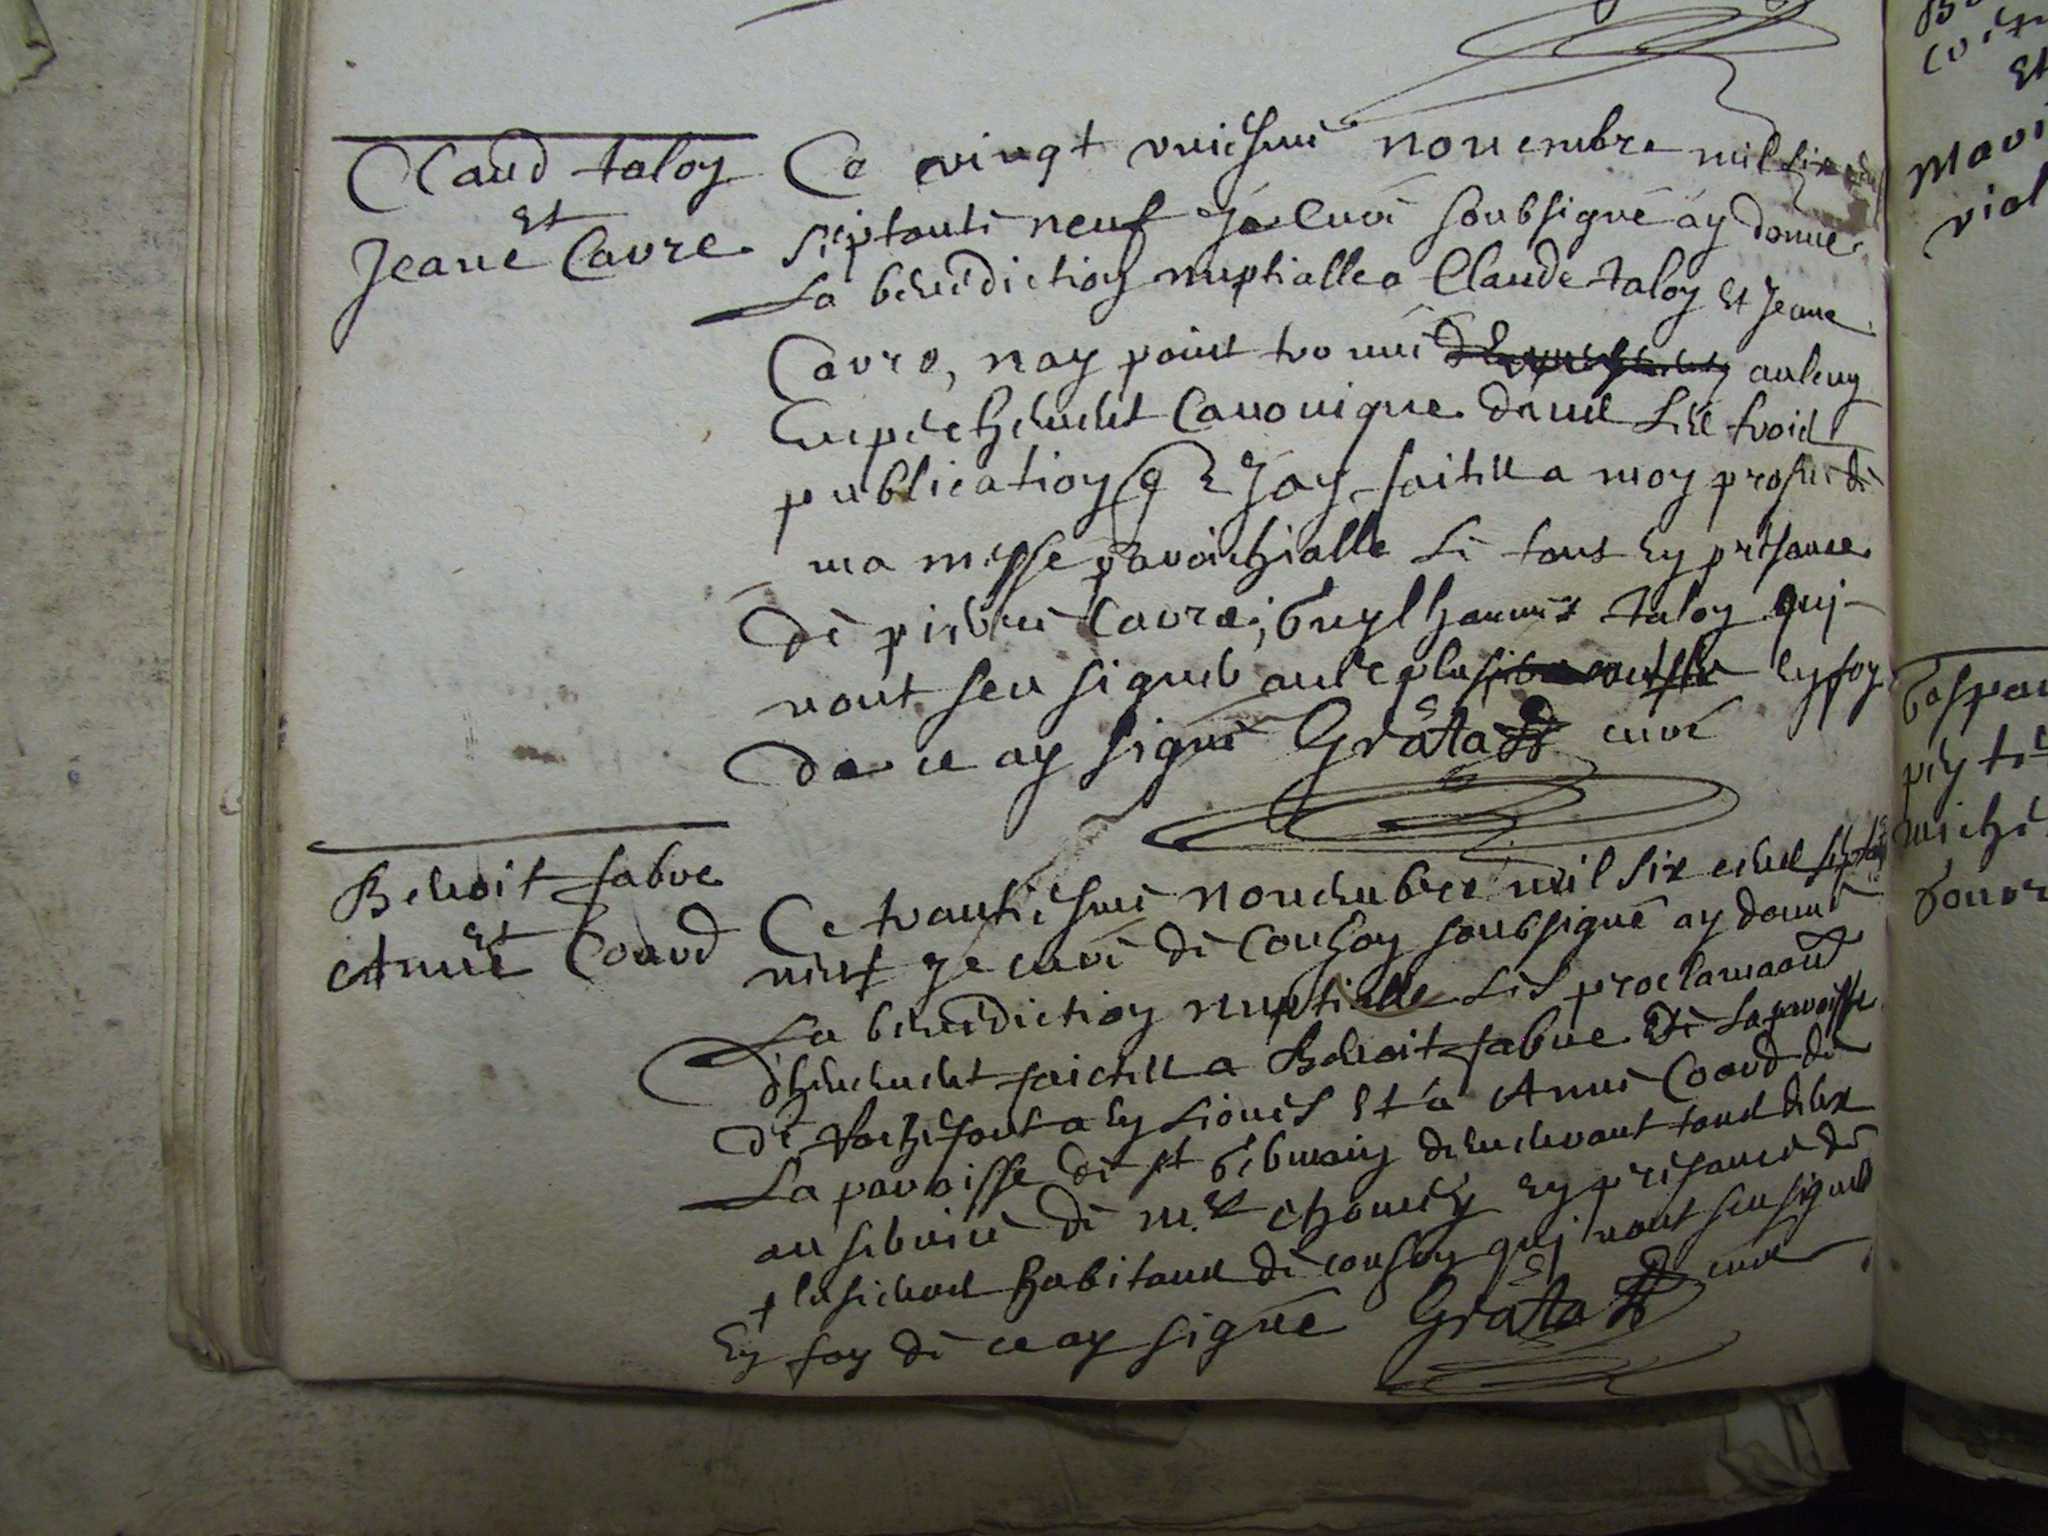 Claud taloy
et
Jeane Cavre
Ce vingt uniesme novembre mil six cen
septante neuf Je Curé soubsigné ay donné
La benediction nuptialle a Claude taloy et Jeane
Cavre, nay point trouvé aulcung
Empechement Canonique dans les trois
publication q Jay faittes a moy prosne de
ma messe paroichialle le tous en presance
de pierre Cavre, Guylhaumes taloy quj
nont seu signer en foy
de ce ay signé Grata curé
Benoit fabre
et
Anne Coard
Ce trantiesme novembre mil six cens septante
neuf Je curé de soubsigné ay donné
La benediction nuptialle les proclamaons
deheuement faictes a Benoit fabre de La paroisse
de Rochefort en Lionès et a Anne Coard de
La paroisse de st Germain demeurant tous deux
au service de mr en presance de
plusieurs habitans de quj nont seu signer
En foy de ce ay signé Grata curé